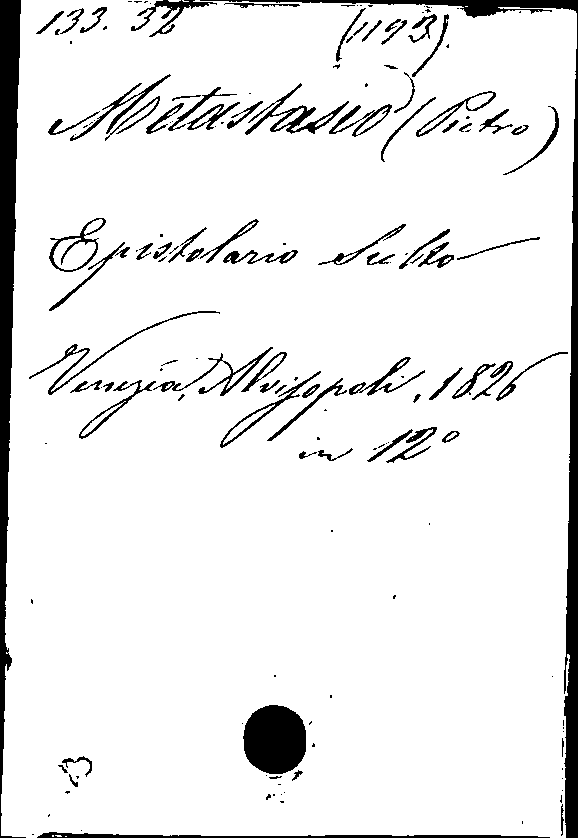 133. 32 (1193).
Metastasio (Pietro)
Epistolario Scelto
Venezia, Alvisopoli, 1826
in 12°